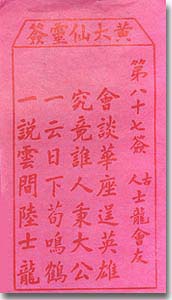 黃大仙靈簽
第八十七簽 古人 士龍會友
會談華座逞英雄
究竟誰人秉大公
一云日下荀鳴鶴
一說雲間陸士龍